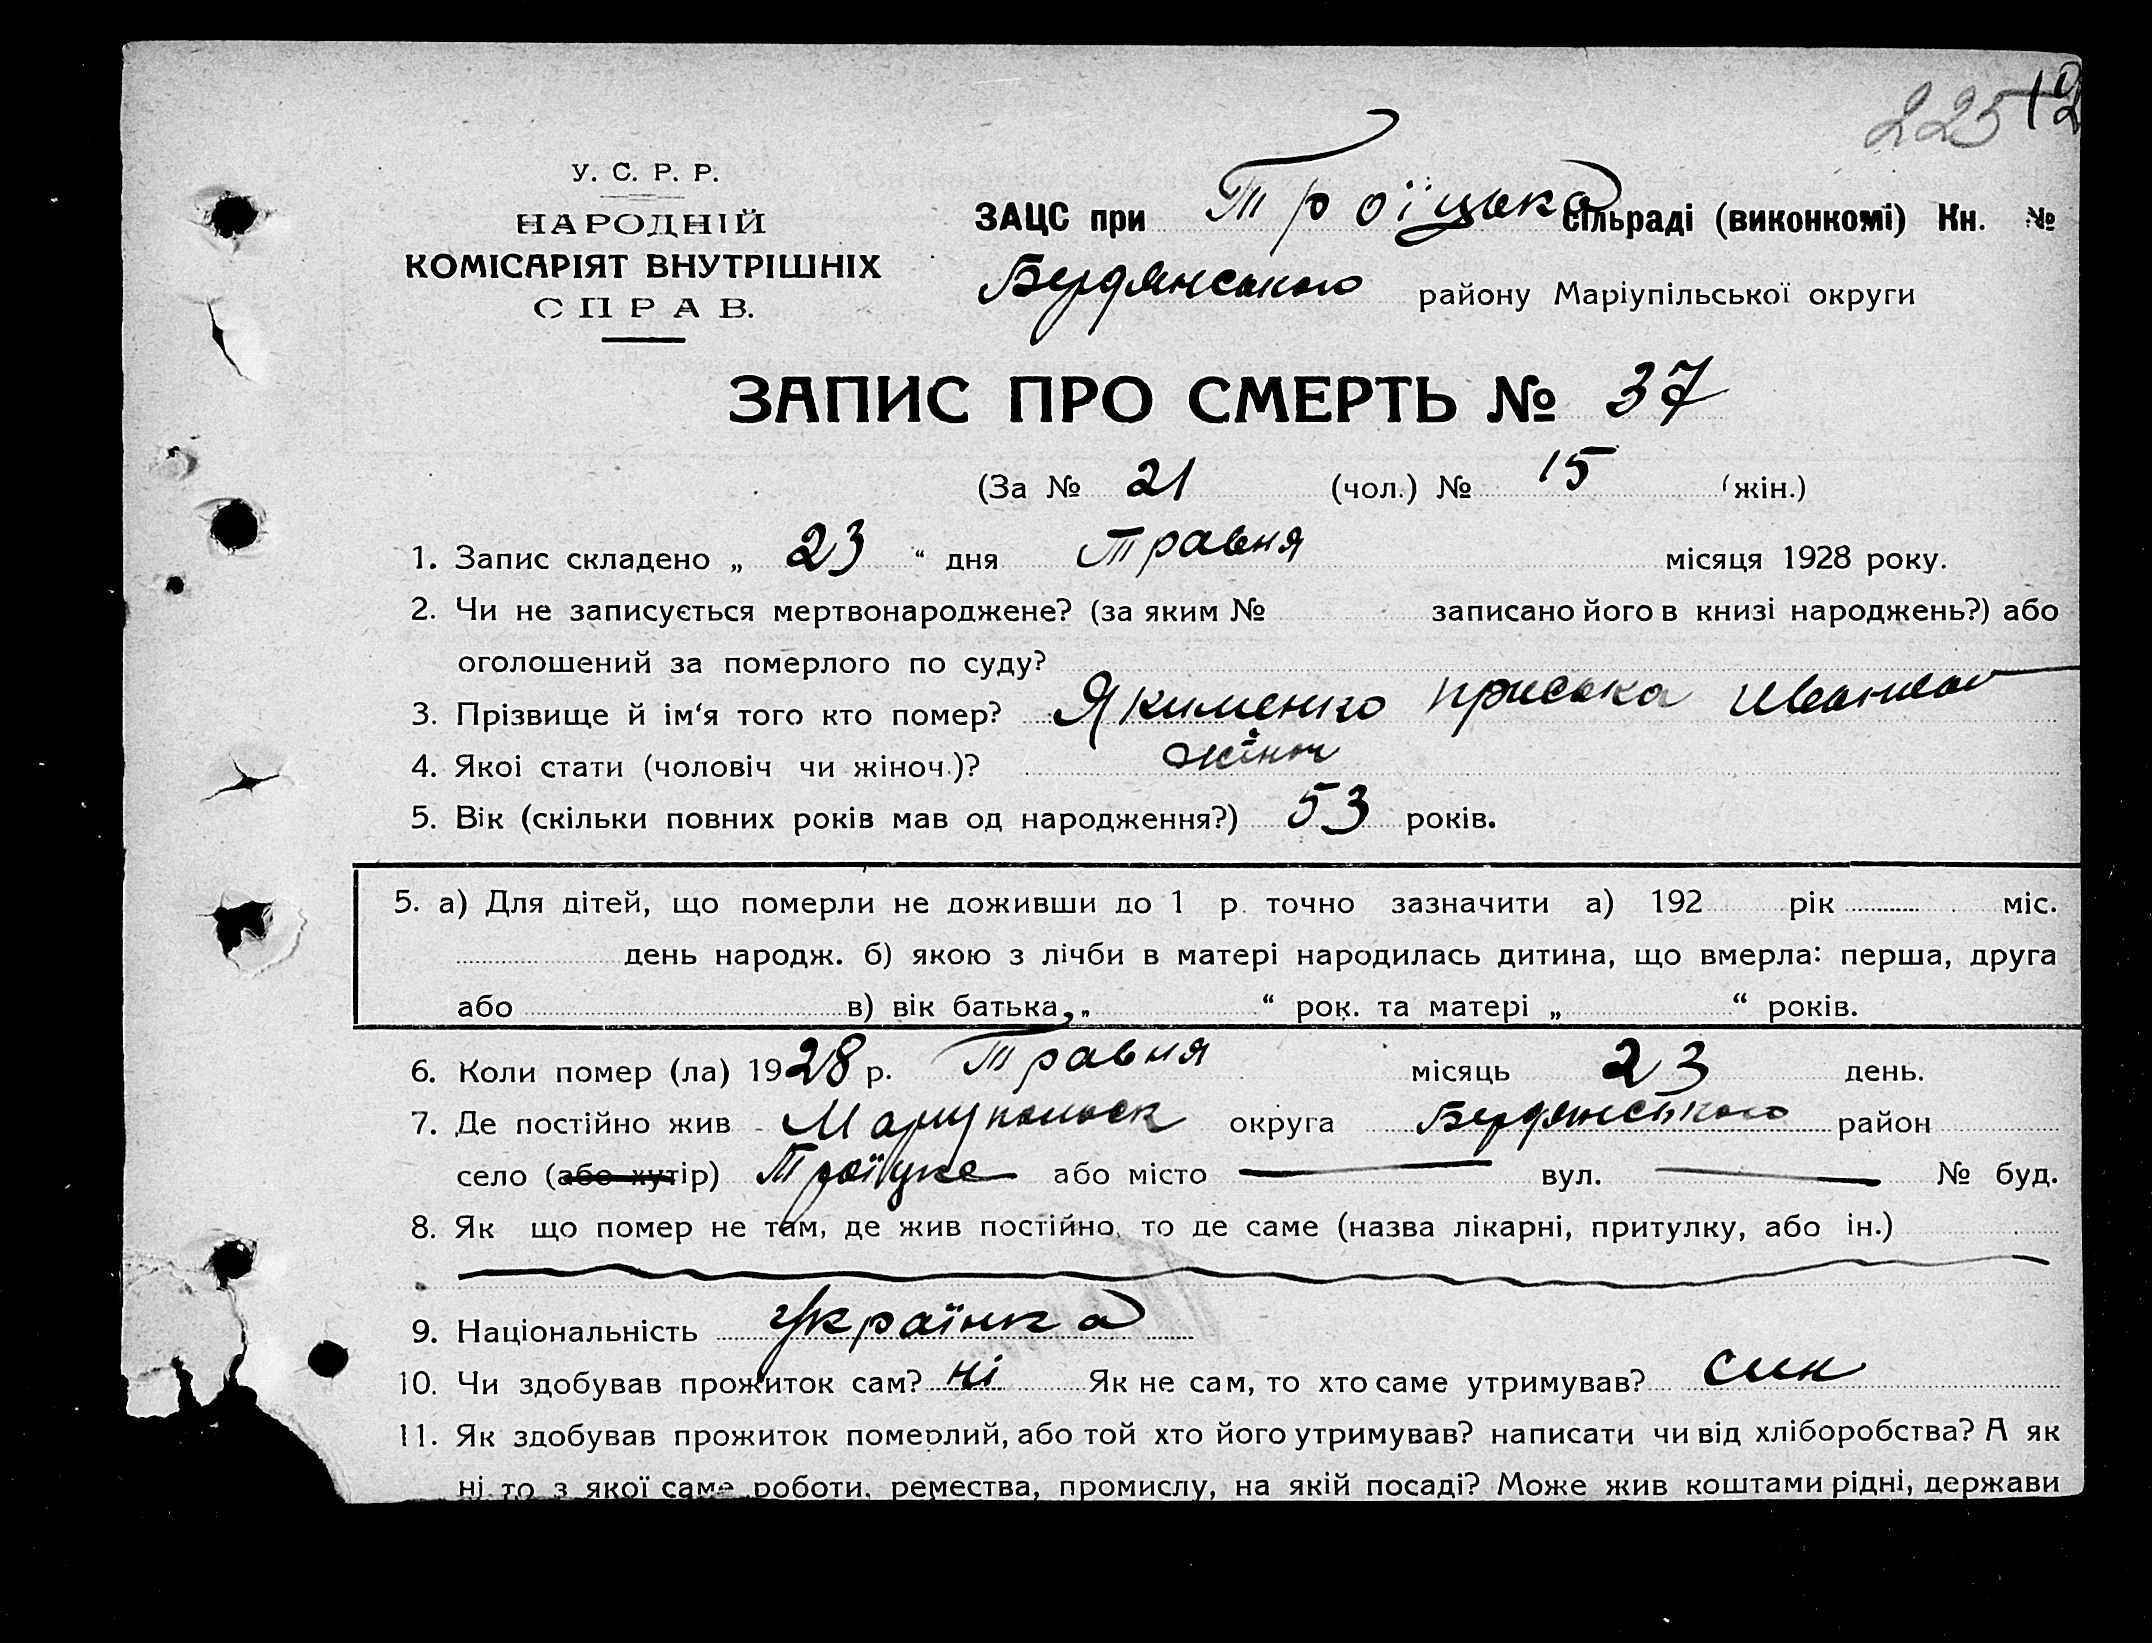 225 12
У. С. Р. Р.
НАРОДНІЙ
КОМІСАРІЯТ ВНУТРІШНІХ
СПРАВ.
ЗАЦС при Троїцька сільраді (виконкомі) Кн. №
Бердянського району Маріупільської округи
ЗАПИС ПРО СМЕРТЬ № 37
(За № 21 (чол.) № 15 (жін.)
1. Запис складено „ 23 “ дня Травня місяця 1928 року.
2. Чи не записується мертвонароджене? (за яким № записано його в книзі народжень?) або
оголошений за померлого по суду?
3. Прізвище й ім‘я того кто помер? Якименко Приська Иванов
4. Якої стати (чоловіч чи жіноч.)? жіноч
5. Вік (скільки повних років мав од народження?) 53 років.
5. а) Для дітей, що померли не доживши до 1 р. точно зазначити а) 192 рік міс.
день народж. б) якою з лічби в матері народилась дитина, що вмерла: перша, друга
або в) вік батька „ “ рок. та матері „ “ років.
6. Коли помер (ла) 1928 р. Травня місяць 23 день.
7. Де постійно жив Маріупольск округа Бердянського район
село (або хутір) Троїцке або місто вул. № буд.
8. Як що помер не там, де жив постійно, то де саме (назва лікарні, притулку, або ін.)
9. Національність Українка
10. Чи здобував прожиток сам? ні Як не сам, то хто саме утримував? син
11. Як здобував прожиток померлий, або той хто його утримував? написати чи від хліборобства? А як
ні, то з якої саме роботи, ремества, промислу, на якій посаді? Може жив коштами рідні, держави